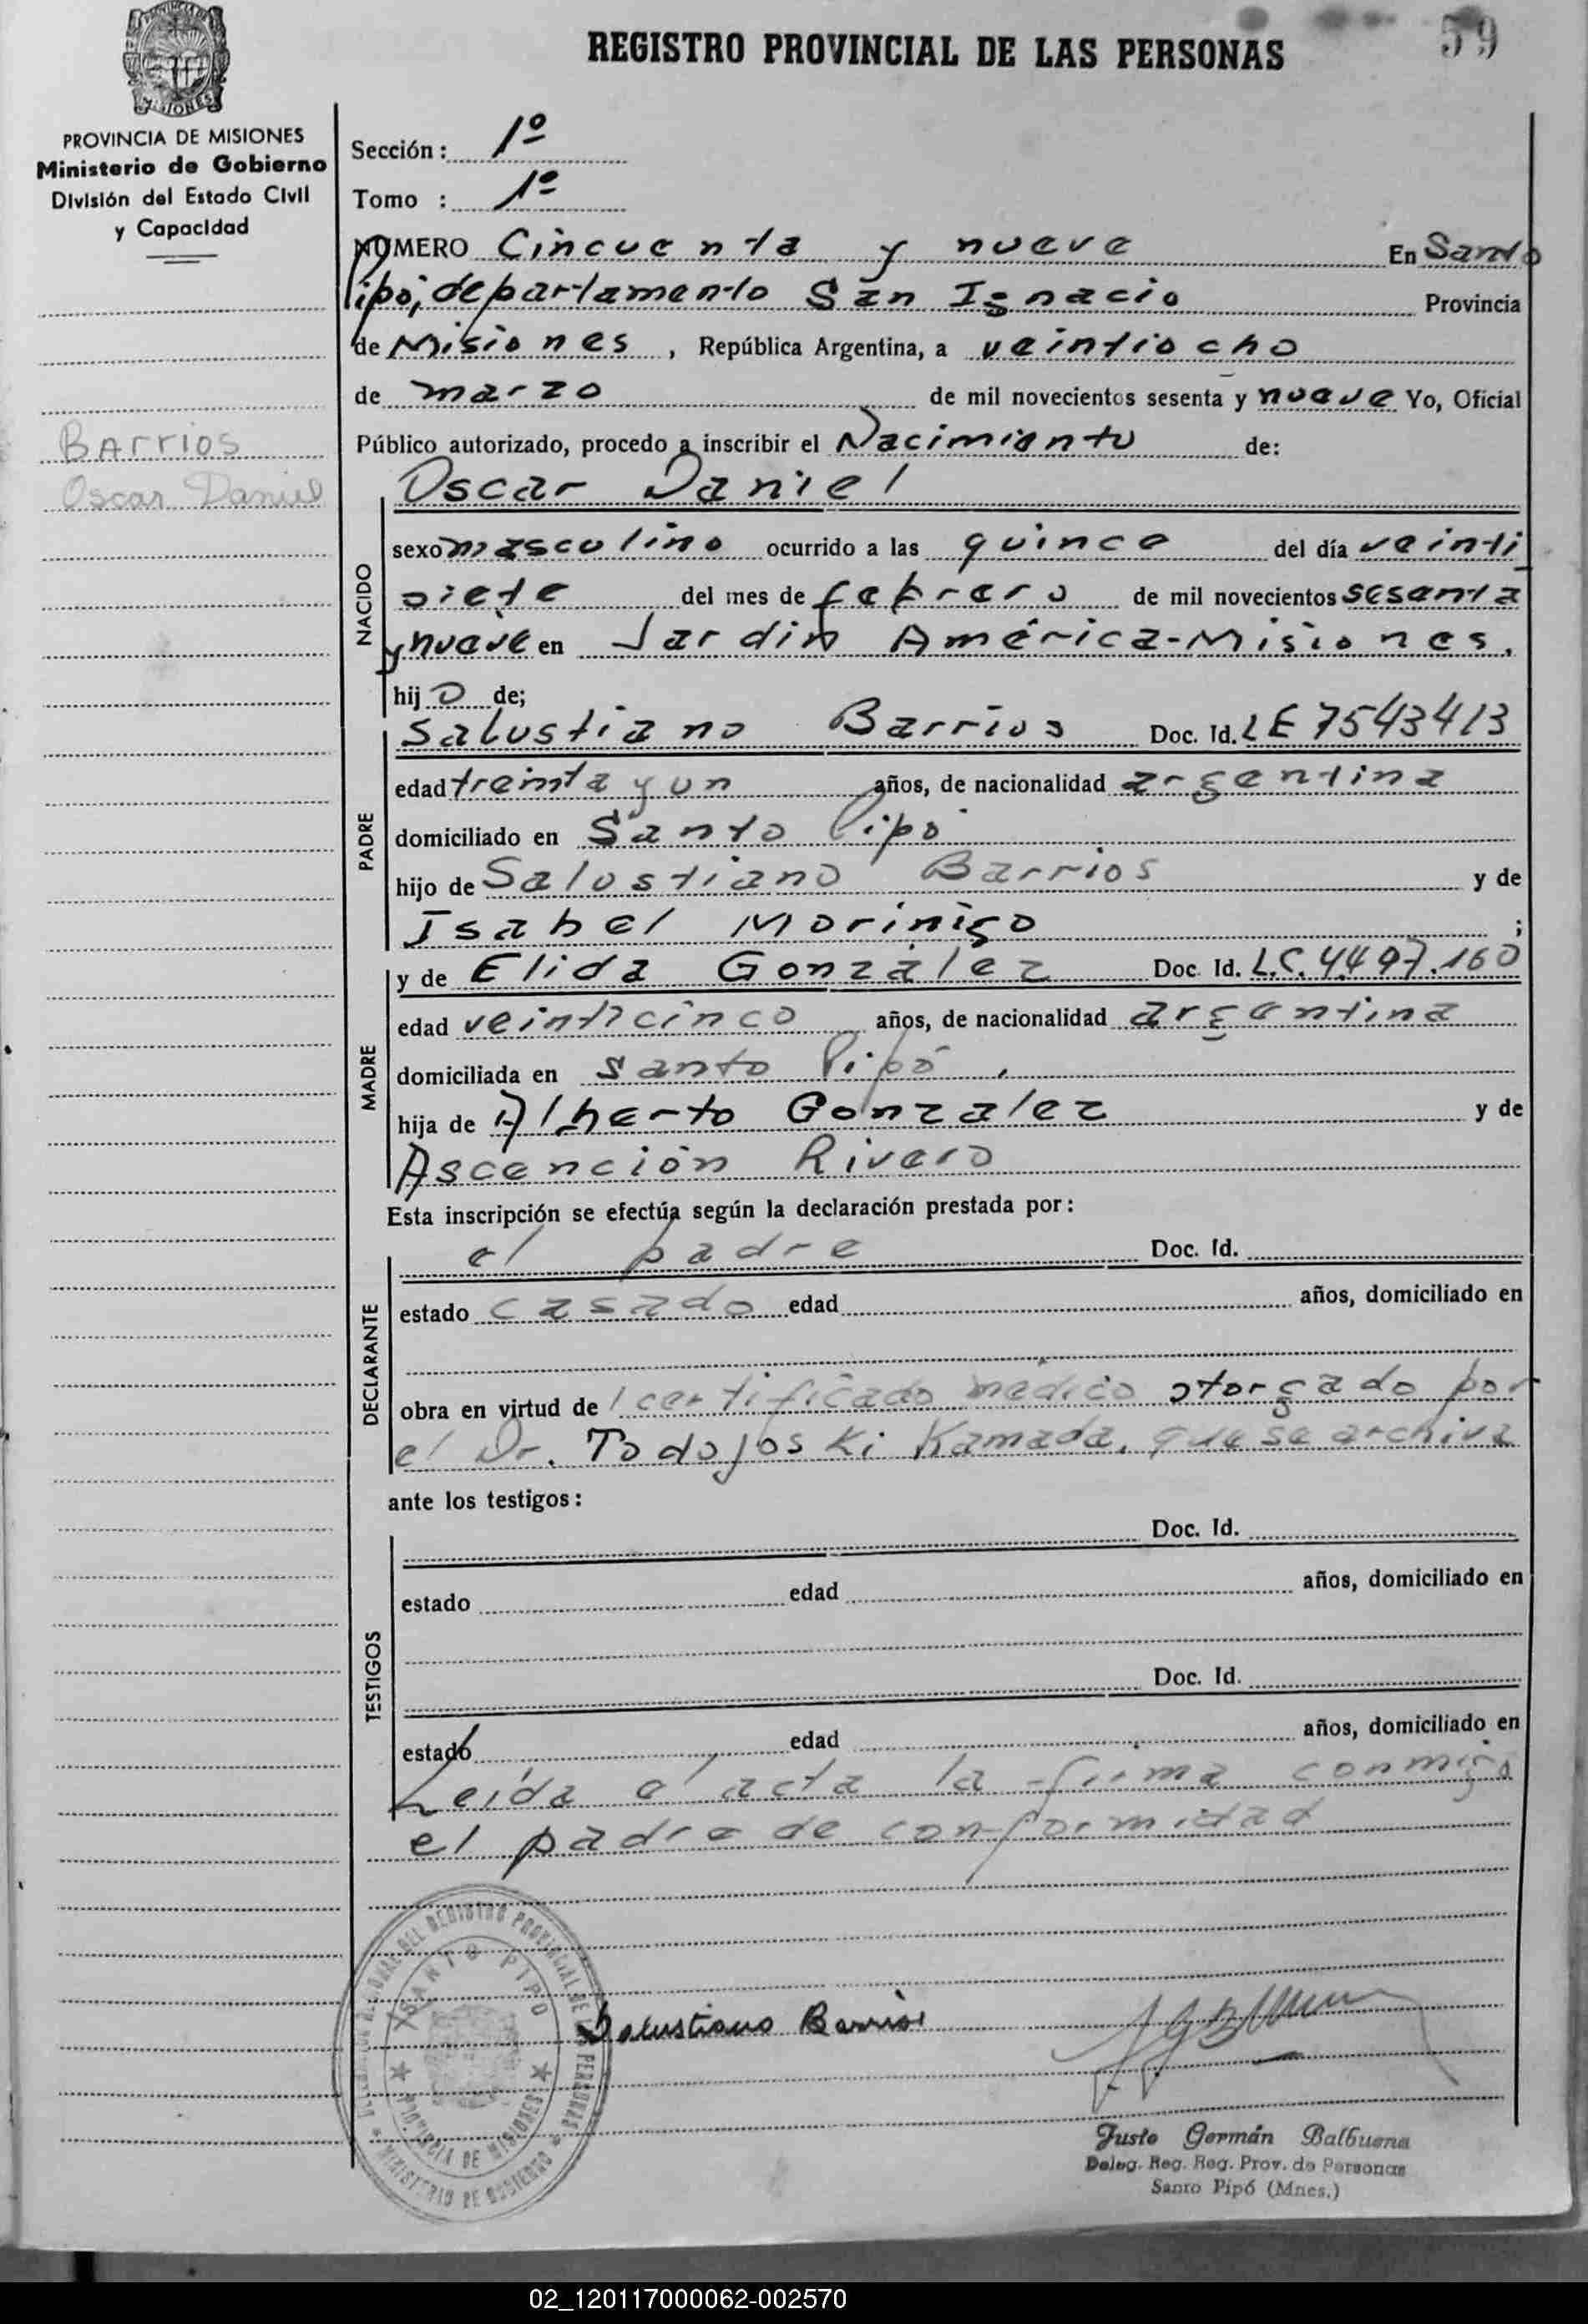 59
REGISTRO PROVINCIAL DE LAS PERSONAS
MISIONES
PROVINCIA DE MISIONES
Ministerio de Gobierno
División del Estado Civil
y Capacidad
Barrios
Oscar Daniel
Sección: 1º
Tomo : 1º
NUMERO Cincuenta y nueve En Santo
Pipó, departamento San Ignacio Provincia
de Misiones, República Argentina, a veintiocho
de marzo de mil novecientos sesenta y nueve Yo, Oficial
Público autorizado, procedo a inscribir el Nacimiento de:
Oscar Daniel
NACIDO
sexo masculino ocurrido a las quince del día veinti
siete del mes de febrero de mil novecientos sesenta
y nueve en Jardin América-Misiones,
hijo de;
Salustiano Barrios Doc. Id. LE 7543413
PADRE
edad treinta y un años, de nacionalidad argentina
domiciliado en Santo Pipó
hijo de Salostiano Barrios y de
Isabel Morinigo ;
y de Elida González Doc. Id. L.C. 4.497.160
MADRE
edad veinticinco años, de nacionalidad argentina
domiciliada en Santo Pipó,
hija de Alberto Gonzalez y de
Ascención Rivero
Esta inscripción se efectúa según la declaración prestada por:
el padre Doc. Id.
DECLARANTE
estado casado edad años, domiciliado en
obra en virtud de 1 certificado medico otorgado por
el Dr. Todojoski Kamada, que se archiva
ante los testigos:
Doc. Id.
TESTIGOS
estado edad años, domiciliado en
Doc. Id.
estado edad años, domiciliado en
Leida el acta la firma conmigo
el padre de conformidad
DEL REGISTRO PROVINCIAL DE LAS PERSONAS
SANTO PIPO
PROVINCIA DE MISIONES
MINISTERIO DE GOBIERNO
Salustiano Barrios
Justo Germán Balbuena
Deleg. Reg. Reg. Prov. de Personas
Santo Pipó (Mnes.)
02_120117000062-002570